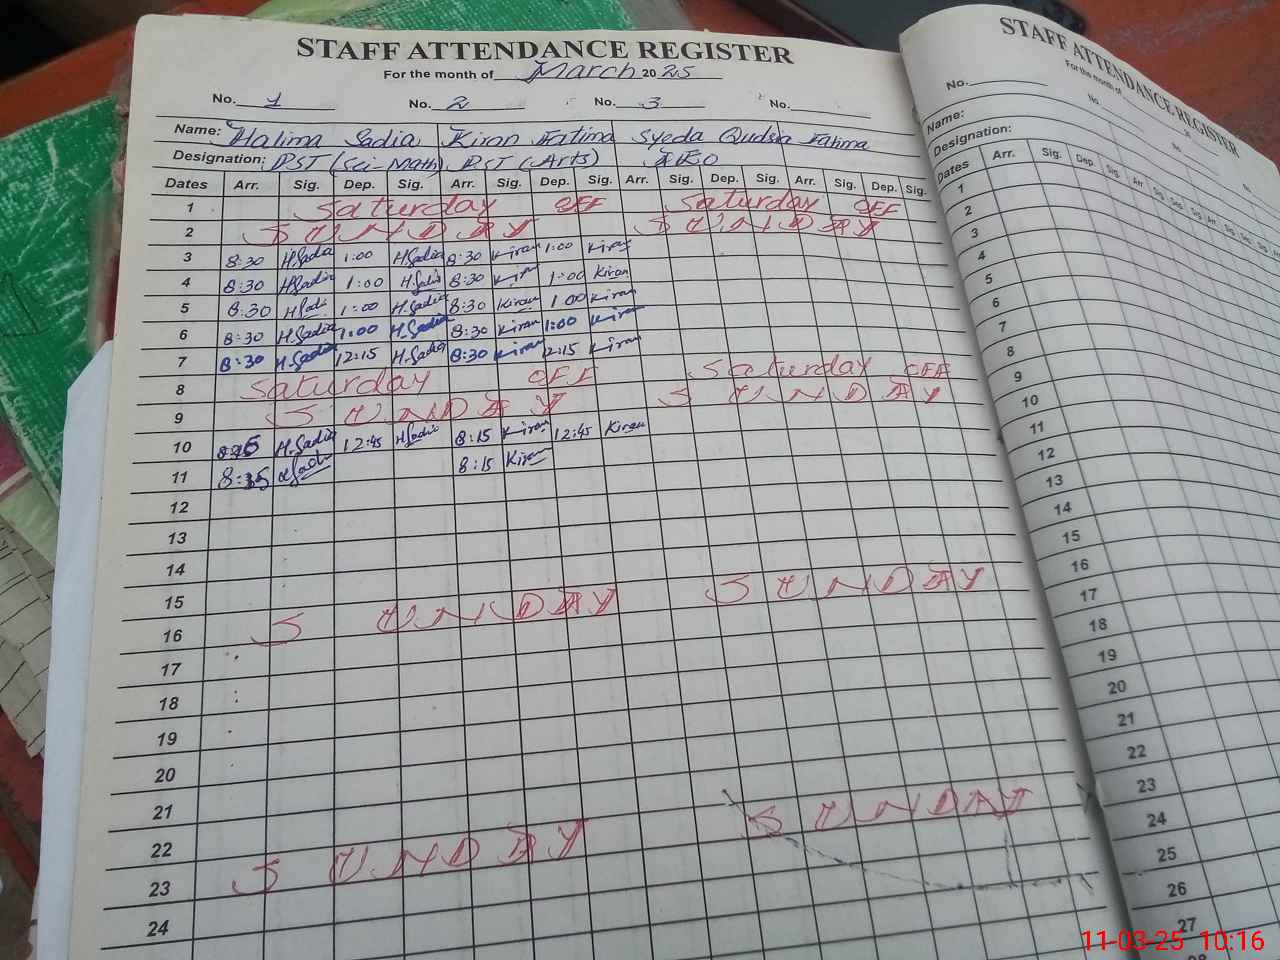 STAFF ATTENDANCE REGISTER
For the month of March 2025
No. 1 No. 2 No. 3 No.
Name: Halima Sadia Kiran Fatima Syeda Qudsia Fatima
Designation: PST (Sci-Math) PST (Arts)
Dates Arr. Sig. Dep. Sig. Arr. Sig. Dep. Sig. Arr. Sig. Dep. Sig. Arr. Sig. Dep. Sig.
1 Saturday OFF Saturday OFF
2 SUNDAY SUNDAY
3 8:30 H.Sadia 1:00 H.Sadia 8:30 Kiran 1:00 Kiran
4 8:30 H.Sadia 1:00 H.Sadia 8:30 Kiran 1:00 Kiran
5 8:30 H.Sadia 1:00 H.Sadia 8:30 Kiran 1:00 Kiran
6 8:30 H.Sadia 1:00 H.Sadia 8:30 Kiran 1:00 Kiran
7 8:30 H.Sadia 12:15 H.Sadia 8:30 Kiran 12:15 Kiran
8 Saturday OFF Saturday OFF
9 SUNDAY SUNDAY
10 H.Sadia 12:45 H.Sadia 8:15 Kiran 12:45 Kiran
11 8:15 Kiran
12
13
14
15
16 SUNDAY SUNDAY
17
18
19
20
21
22
23 SUNDAY SUNDAY
24
STAFF ATTENDANCE REGISTER
For the month of 20
No. No. No. No.
Name:
Designation:
Dates Arr. Sig. Dep. Sig. Arr. Sig. Dep. Sig. Arr. Sig. Dep. Sig.
1
2
3
4
5
6
7
8
9
10
11
12
13
14
15
16
17
18
19
20
21
22
23
24
25
26
27
28
11-03-25 10:16